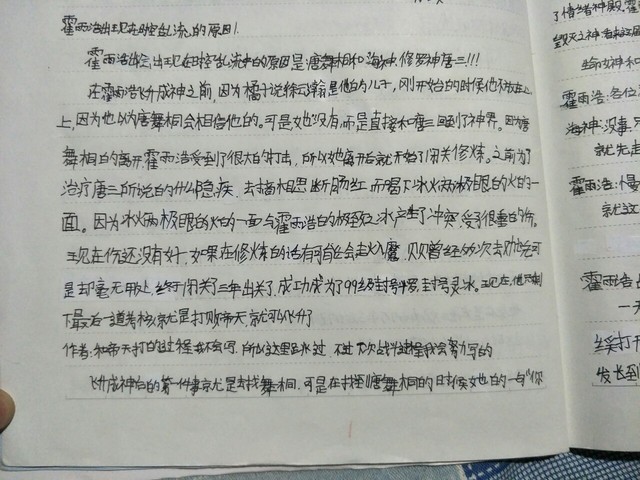 霍雨浩出现在时空乱流的原因.
霍雨浩会出现在时空乱流中的原因是:唐舞桐和海神,修罗神唐三!!!
在霍雨浩飞升成神之前,因为橘子说徐云瀚是他的儿子,刚开始的时候他不放在心
上,因为他以为唐舞桐会相信他的。可是她没有,而是直接和唐三回到了神界。因为唐
舞桐的离开霍雨浩受到了很大的打击,所以她离开后就开始了闭关修炼。之前为了
治疗唐三所说的什么隐疾,去摘相思断肠红而喝下冰火两极眼的火的一
面。因为冰火两极眼的火的一面与霍雨浩的极致之冰产生了冲突,受了很重的伤。
现在伤还没有好,如果在修炼的话有可能会走火入魔,贝贝曾经的多次去劝他可
是却毫无用处,终于闭关了三年出关了,成功成为了99级封号斗罗,封号灵冰。现在他只剩
下最后一道考核就是打败帝天,就可以飞升了
作者:和帝天打的过程我不会写,所以这里跳过,不过下次战斗过程我会努力写的
飞升成神的第一件事就是去找舞桐,可是在找到唐舞桐的时候她的一句"你
了情绪神殿,霍
毁灭之神
霍雨浩:各位
海神:没事,
就先走
霍雨浩:慢
就这
霍雨浩
一天
发长到